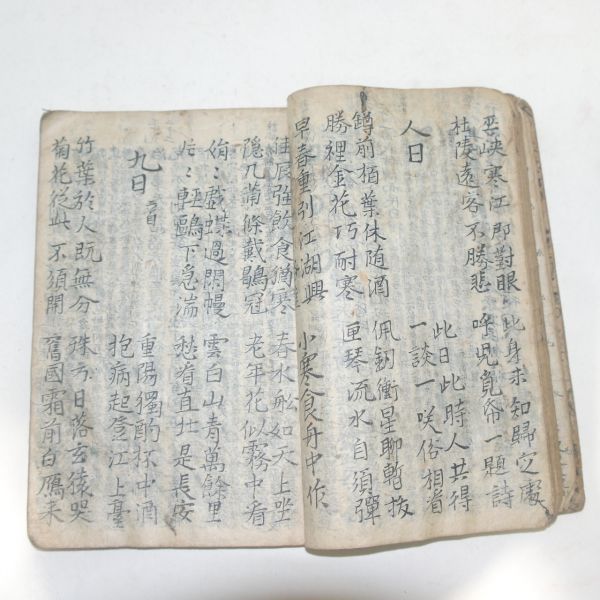 巫峽寒江那對眼 此身未知歸定處
杜陵遠客不勝悲 呼兒覓帋一題詩
人日
此日此時人共得
一談一咲俗相看
罇前栢葉休随酒 佩釰衝星聊暫拔
勝裡金花巧耐寒 匣琴流水自須彈
早春重引江湖興 小寒食舟中作
佳辰强飲食猶寒 春水舩如天上坐
隱几蕭條戴鶡冠 老年花似霧中看
娟〻戲蝶過閑幔 雲白山青萬餘里
片〻輕鷗下急湍 愁看直北是長安
九日
重陽獨酌杯中酒
抱病起登江上臺
竹葉於人既無分 殊方日落玄猿哭
菊花從此不須開 舊國霜前白鴈来